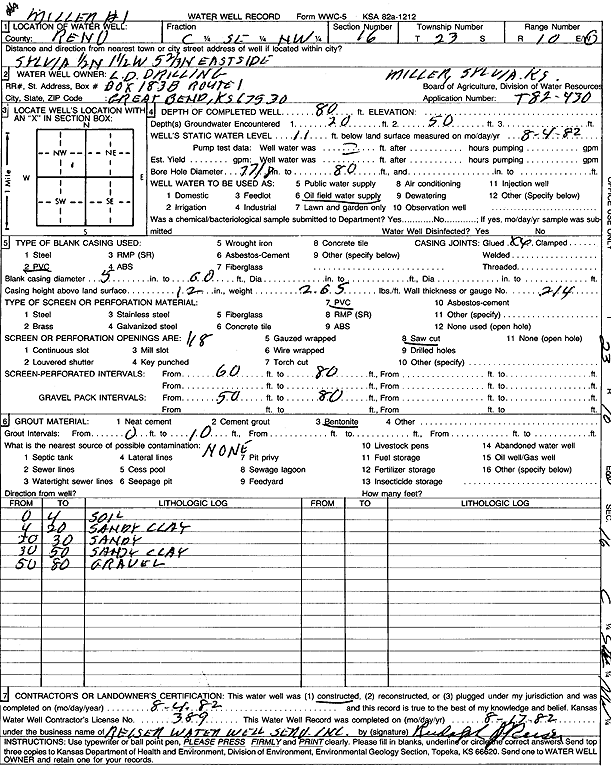 MILLER #1 WATER WELL RECORD Form WWC-5 KSA 82a-1212
1 LOCATION OF WATER WELL: Fraction Section Number Township Number Range Number
County: RENO C ¼ SE ¼ NW ¼ 16 T 23 S R 10 E/W
Distance and direction from nearest town or city street address of well if located within city?
SYLVIA 1/2N 1 1/2W 5 3/4N EASTSIDE
2 WATER WELL OWNER: L.D. DRILLING MILLER, SYLVIA KS.
RR#, St. Address, Box # BOX 183B ROUTE 1 Board of Agriculture, Division of Water Resources
City, State, ZIP Code GREAT BEND, KS 67530 Application Number: T82-430
3 LOCATE WELL'S LOCATION WITH AN "X" IN SECTION BOX:
N
NW NE
W E
SW SE
S
1 Mile
4 DEPTH OF COMPLETED WELL 80 ft. ELEVATION:
Depth(s) Groundwater Encountered 1. 20 ft. 2. 50 ft. 3. ft.
WELL'S STATIC WATER LEVEL 11 ft. below land surface measured on mo/day/yr 8-4-82
Pump test data: Well water was ft. after hours pumping gpm
Est. Yield gpm: Well water was ft. after hours pumping gpm
Bore Hole Diameter 7 7/8 in. to 80 ft., and in. to ft.
WELL WATER TO BE USED AS: 5 Public water supply 8 Air conditioning 11 Injection well
1 Domestic 3 Feedlot 6 Oil field water supply 9 Dewatering 12 Other (Specify below)
2 Irrigation 4 Industrial 7 Lawn and garden only 10 Observation well
Was a chemical/bacteriological sample submitted to Department? Yes No ; If yes, mo/day/yr sample was submitted Water Well Disinfected? Yes No
5 TYPE OF BLANK CASING USED: 5 Wrought iron 8 Concrete tile CASING JOINTS: Glued Clamped
1 Steel 3 RMP (SR) 6 Asbestos-Cement 9 Other (specify below) Welded
2 PVC 4 ABS 7 Fiberglass Threaded
Blank casing diameter 5 in. to 60 ft., Dia in. to ft., Dia in. to ft.
Casing height above land surface 12 in., weight 2.65 lbs./ft. Wall thickness or gauge No. 214
TYPE OF SCREEN OR PERFORATION MATERIAL: 7 PVC 10 Asbestos-cement
1 Steel 3 Stainless steel 5 Fiberglass 8 RMP (SR) 11 Other (specify)
2 Brass 4 Galvanized steel 6 Concrete tile 9 ABS 12 None used (open hole)
SCREEN OR PERFORATION OPENINGS ARE: 1/8 5 Gauzed wrapped 8 Saw cut 11 None (open hole)
1 Continuous slot 3 Mill slot 6 Wire wrapped 9 Drilled holes
2 Louvered shutter 4 Key punched 7 Torch cut 10 Other (specify)
SCREEN-PERFORATED INTERVALS: From 60 ft. to 80 ft., From ft. to ft.
From ft. to ft., From ft. to ft.
GRAVEL PACK INTERVALS: From 50 ft. to 80 ft., From ft. to ft.
From ft. to ft., From ft. to ft.
6 GROUT MATERIAL: 1 Neat cement 2 Cement grout 3 Bentonite 4 Other
Grout Intervals: From 0 ft. to 10 ft., From ft. to ft., From ft. to ft.
What is the nearest source of possible contamination: NONE 10 Livestock pens 14 Abandoned water well
1 Septic tank 4 Lateral lines 7 Pit privy 11 Fuel storage 15 Oil well/Gas well
2 Sewer lines 5 Cess pool 8 Sewage lagoon 12 Fertilizer storage 16 Other (specify below)
3 Watertight sewer lines 6 Seepage pit 9 Feedyard 13 Insecticide storage
Direction from well? How many feet?
FROM TO LITHOLOGIC LOG FROM TO LITHOLOGIC LOG
0 4 SOIL
4 20 SANDY CLAY
20 30 SANDY
30 50 SANDY CLAY
50 80 GRAVEL
7 CONTRACTOR'S OR LANDOWNER'S CERTIFICATION: This water well was (1) constructed, (2) reconstructed, or (3) plugged under my jurisdiction and was
completed on (mo/day/year) 8-4-82 and this record is true to the best of my knowledge and belief. Kansas
Water Well Contractor's License No. 389 This Water Well Record was completed on (mo/day/yr) 8-17-82
under the business name of REISER WATER WELL SERV. INC. by (signature) Rudolph Reiser
INSTRUCTIONS: Use typewriter or ball point pen, PLEASE PRESS FIRMLY and PRINT clearly. Please fill in blanks, underline or circle the correct answers. Send top
three copies to Kansas Department of Health and Environment, Division of Environment, Environmental Geology Section, Topeka, KS 66620. Send one to WATER WELL
OWNER and retain one for your records.
OFFICE USE ONLY
T 23 R 10 E/W SEC. 16 C ¼ SE ¼ NW ¼